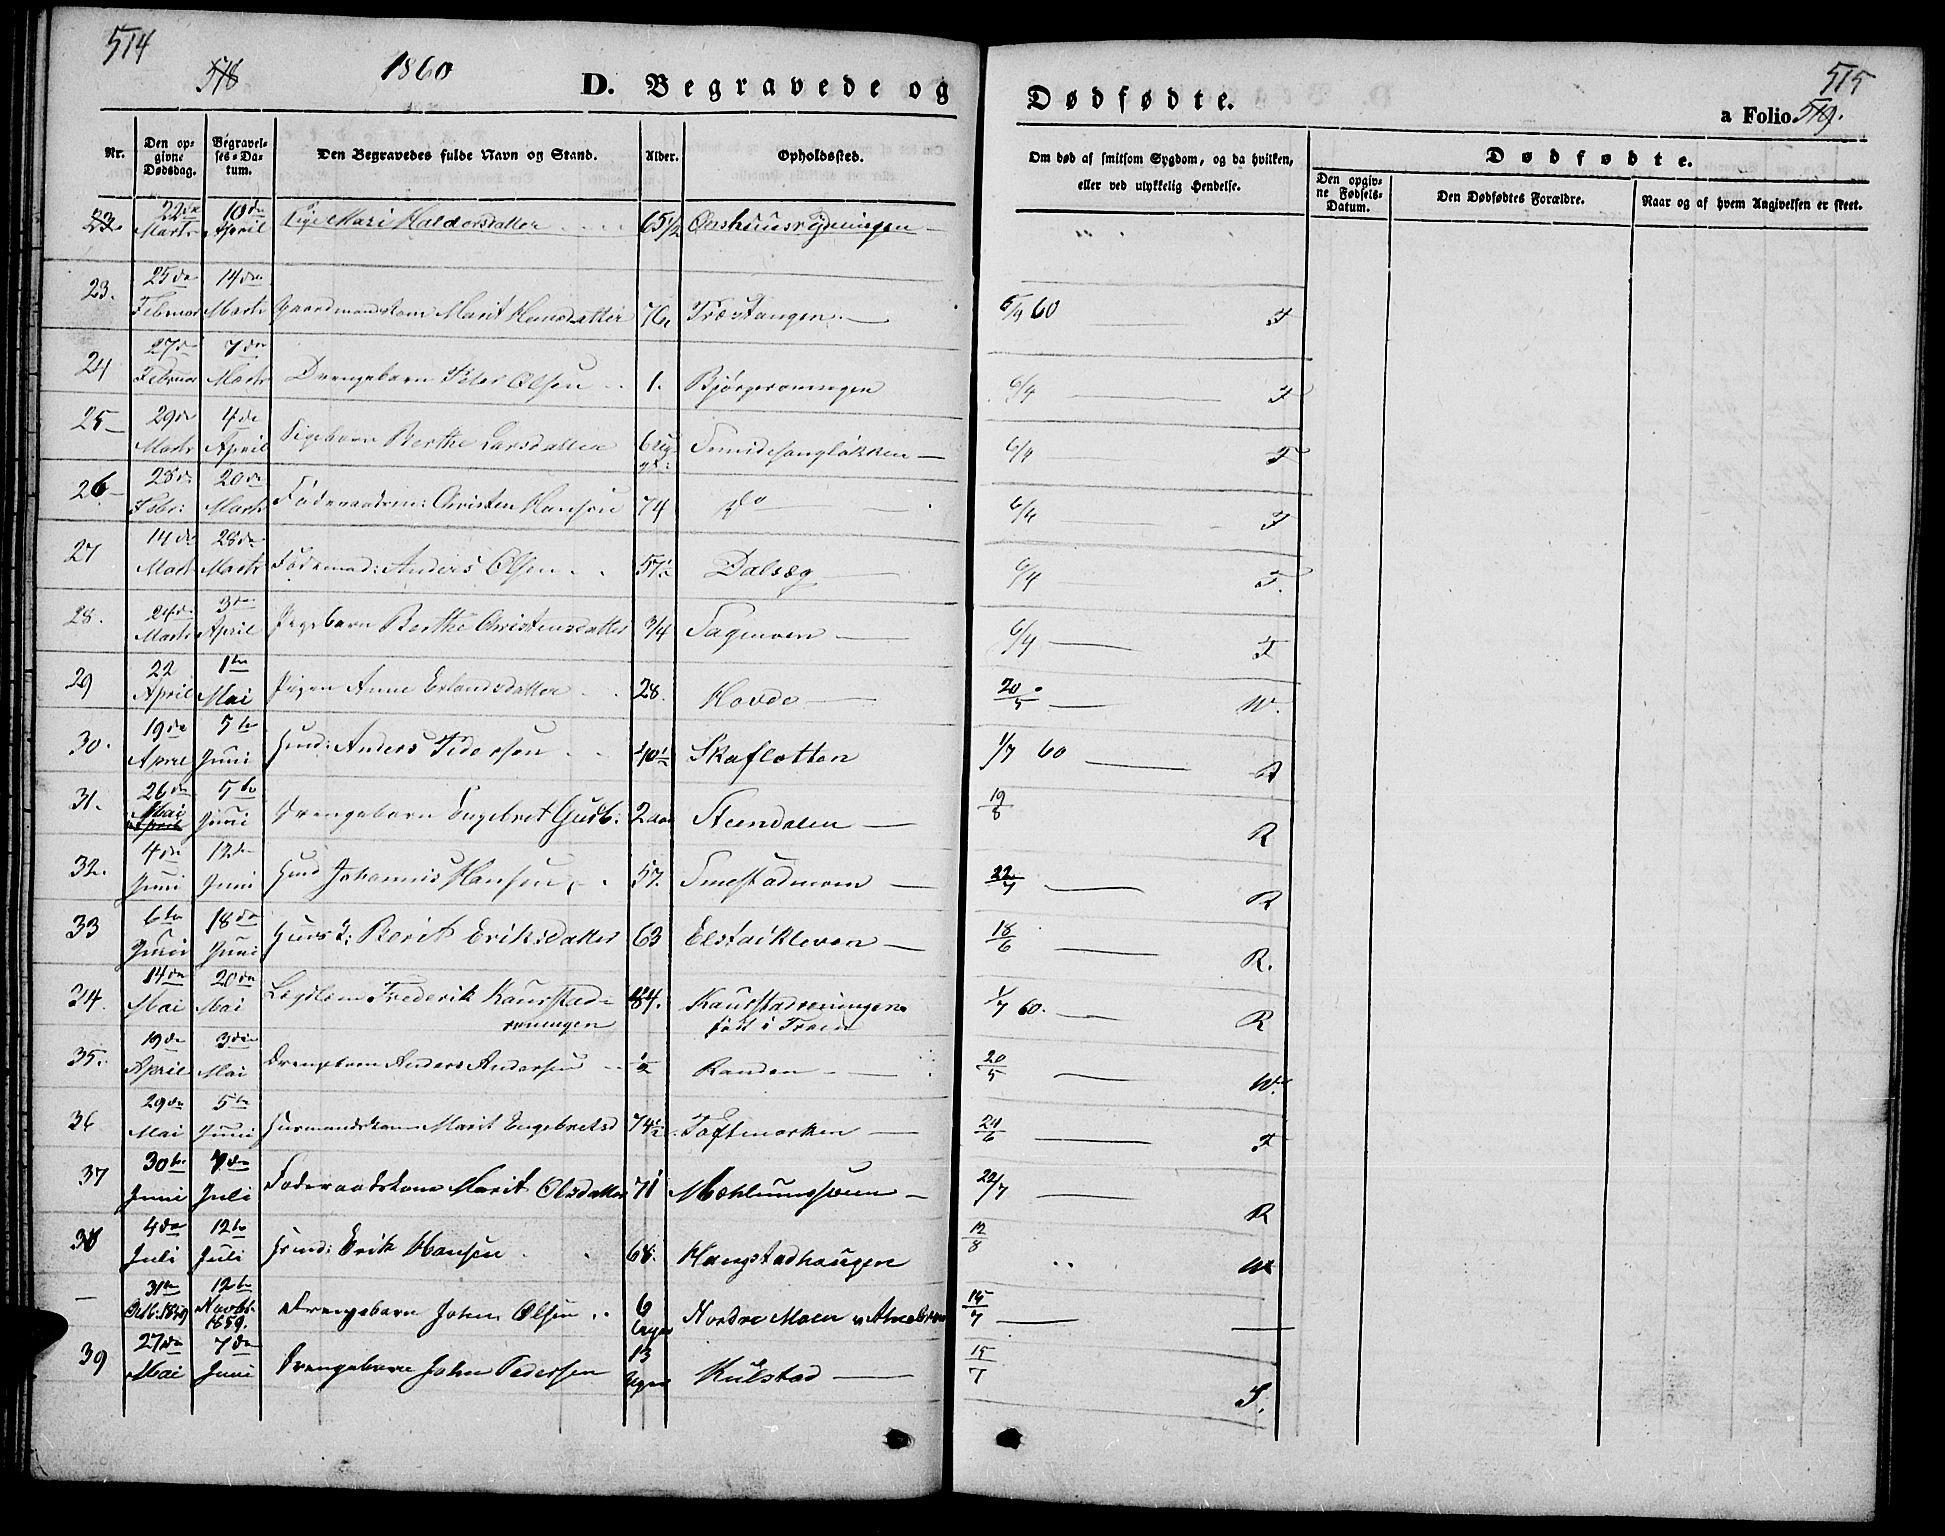 514
578
1860
D. Begravede og
Dødfødte.
515
a Folio 519.
Nr.
Den opgivne Dødsdag.
Begravelses-Datum.
Den Begravedes fulde Navn og Stand.
Alder.
Opholdssted.
Om død af smitsom Sygdom, og da hvilken, eller ved ulykkelig Hendelse.
Dødfødte.
Den opgivne Fødsels-Datum.
Den Dødfødtes Forældre.
Naar og af hvem Angivelsen er skeet.
23. 22de Marts 10de April Pige Mari Haldorsdatter 65½
23. 25de Februar 14de Marts Gaardmandskone Marit Hansdatter 76. Træstangen 6/4 60 T
24 27de Februar 7de Marts Drengebarn Peter Olsen 1. Bjørgeroningen 6/4 T
25 29de Marts 4de April Pigebarn Berthe Larsdatter 6 Smidesangløkken 6/4 T
26 28de Febr: 20de Marts Føderaadsm: Christen Hansen 74 do 6/4 T
27 14de Marts 28de Marts Anders Olsen 57½ Dalsæg 6/4 T.
28. 24de Marts 3die April Pigebarn Berthe Christensdatter ¾ Sagmoen 6/4 T
29 22 April 1ste Mai Pigen Anne Erlandsdatter 28. Hovde 20/5 W.
30. 19de April 5te Juni Husmd: Anders Pedersen 40½ Skaflotten 1/7 60 R
31. 26de Mai April 5te Juni Drengebarn Engebret Gudb: 2 Steendalen 19/8 R
32. 4de Juni 12te Juni Husmd Johannis Hansen 57. Smestadmoen 22/7 R
33 6te Juni 18de Juni Berit Eriksdatter 63 Elstadkleven 18/6 R.
34. 14de Mai 20de Mai Lægdslem Frederik Kaurstad-
roningen 84. Kaurstadroningen
født i Fron 1/7 60. R
35. 19de April 3die Mai Drengebarn Anders Andersen ½ Randen 20/5 W.
36 29de Mai 5te Juni Husmandskone Marit Engebretsd 74½ Toftemarken 24/6 T
37 30te Juni 7de Juli Føderaadskone Marit Olsdatter 71 Mæhlumshuun 22/7 R
38 4de Juli 12te Juli Husmd: Erik Hansen 68. Haugstadhaugen 12/8 W
— 31te Octb. 1859 12te Novbr. 1859. Drengebarn John Olsen 6 Uger Nordre Moen 15/7
39 27de Mai 7de Juni Drengebarn John Pedersen 13 Uger Kulstad 15/7 S.